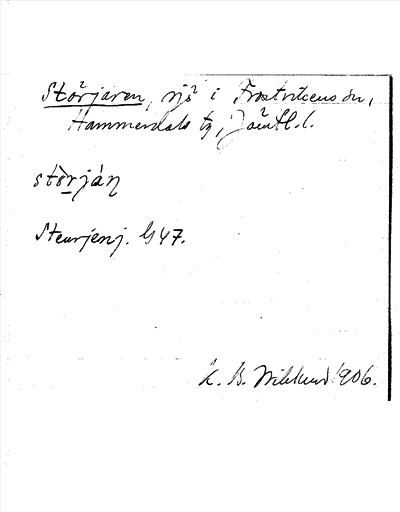 Storjaren, sjö i Frostvikens sn,
Hammerdals tg, Jämtl. l.
stòrján
Steurjenj. G 47.
K. B. Wiklund 1906.